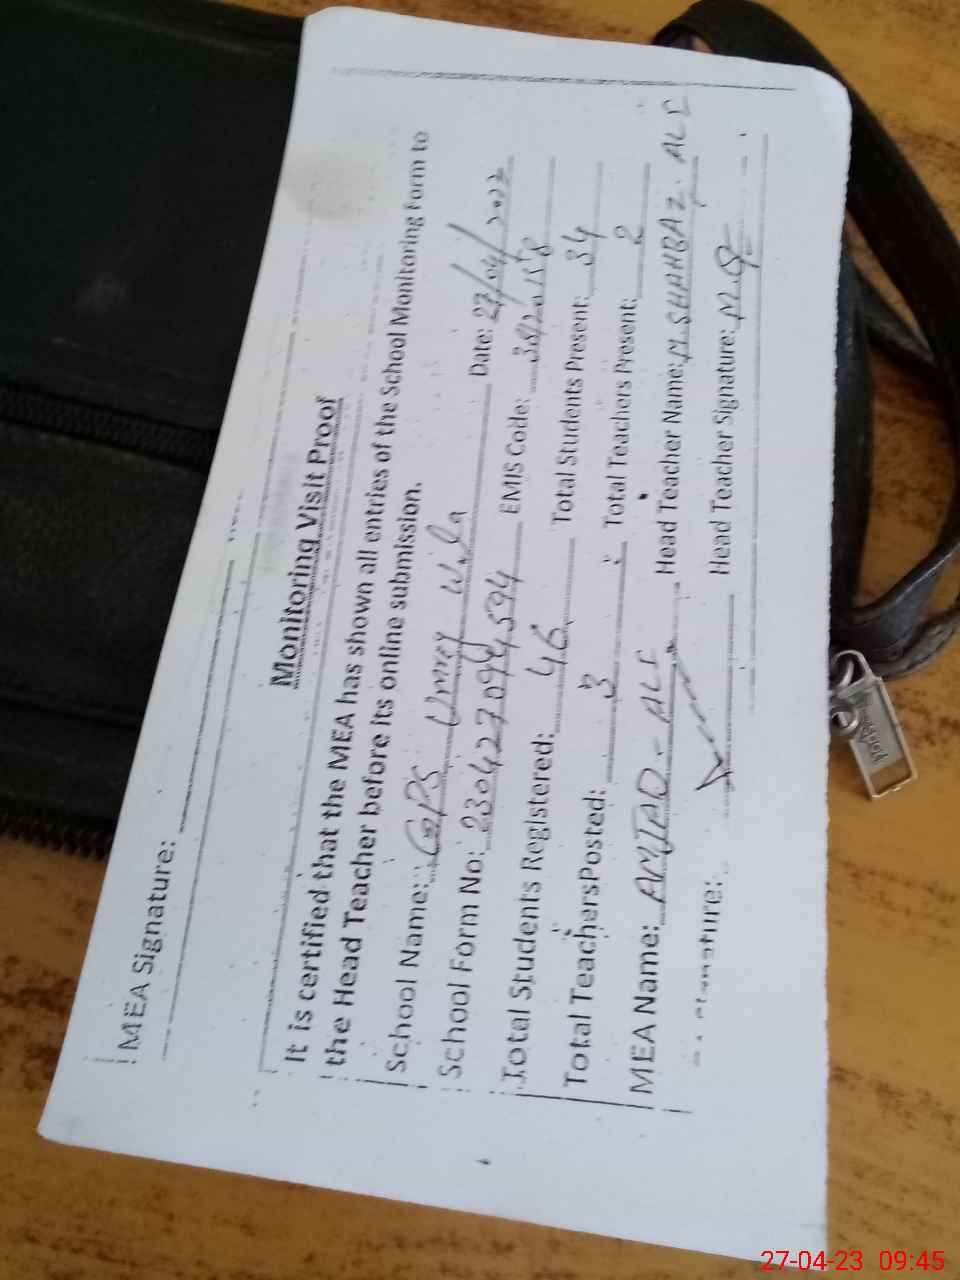 MEA Signature:
Monitoring Visit Proof
It is certified that the MEA has shown all entries of the School Monitoring Form to
the Head Teacher before its online submission.
School Name: GPS Umrey Wala Date: 27/04/2023
School Form No: 230427094594 EMIS Code:
Total Students Registered: 46 Total Students Present: 34
Total TeachersPosted: 3 Total Teachers Present: 2
MEA Name: AMJAD-ALI Head Teacher Name: M.SHAHBAZ. ALI
Signature: Head Teacher Signature:
27-04-23 09:45